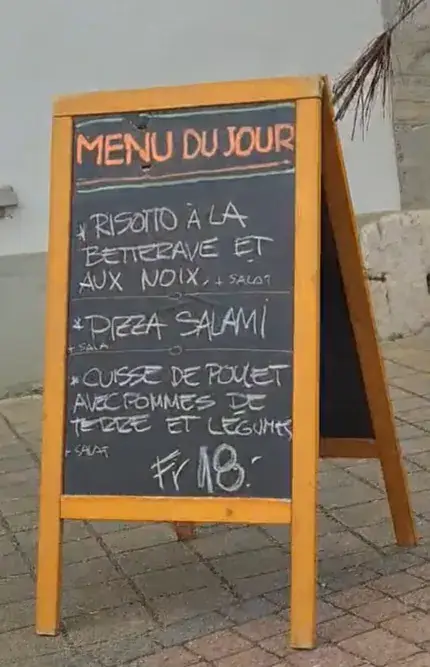 MENU DU JOUR
* RISOTTO À LA
BETTERAVE ET
AUX NOIX. + SALAT
* PIZZA SALAMI
+ SALA
* CUISSE DE POULET
AVEC POMMES DE
TERRE ET LÉGUMES
+ SALAT
Fr 18.-